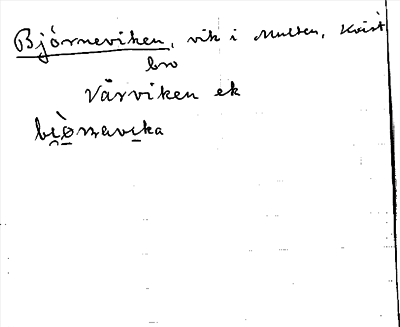 Björneviken, vik i Multen, Kvist
bro
Värviken ek
bi̯òṉavi̱ka